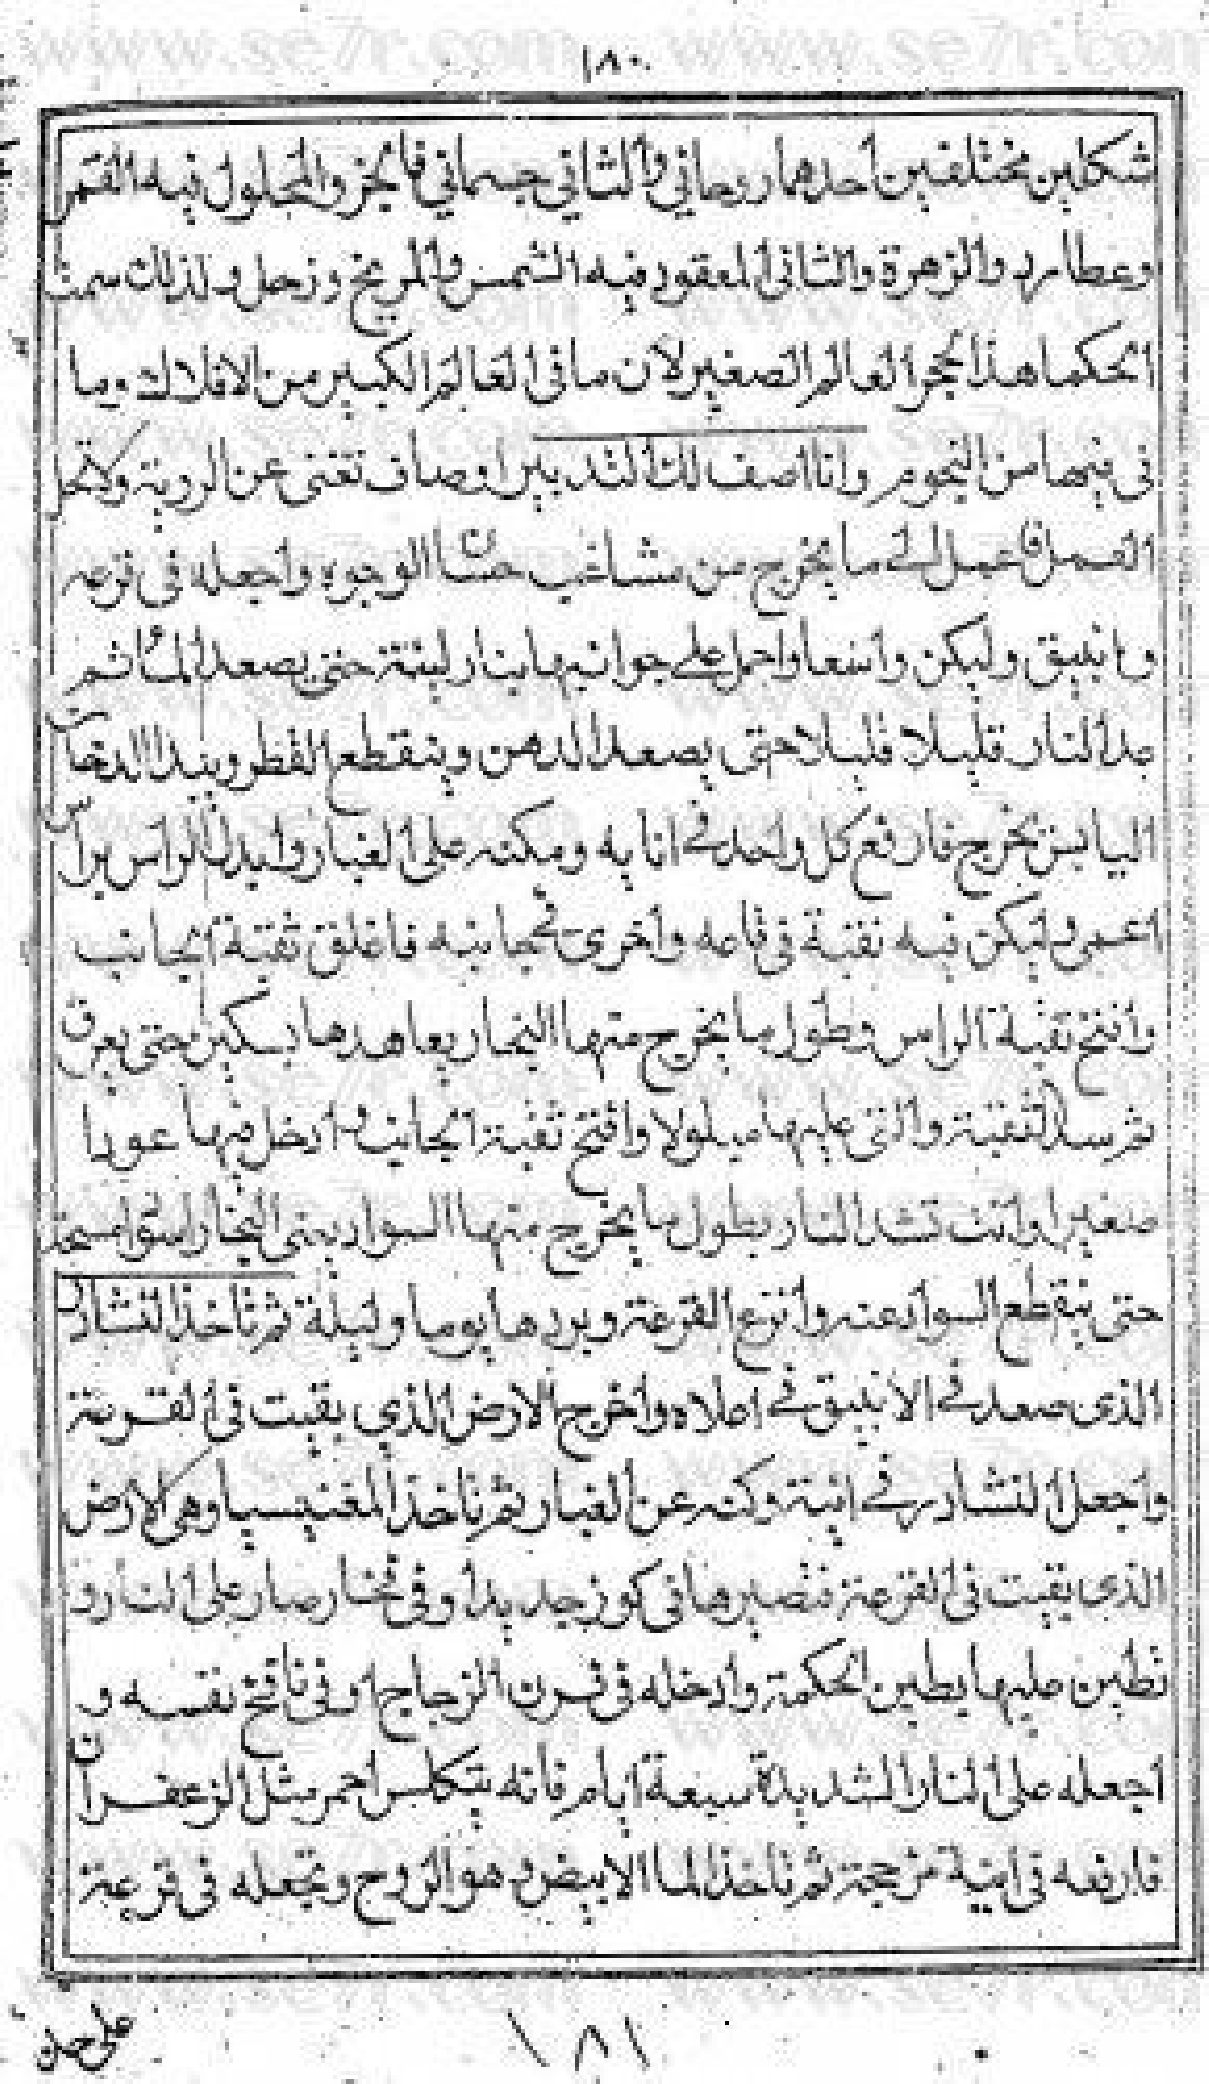 www.se7r.com www.se7r.com
١٨٠
شكلين مختلفين احدهما روحاني والثاني جسماني فالجزء المحلول فيه القمر
وعطارد والزهرة والثاني المعقود فيه الشمس والمريخ وزحل ولذلك سمت
الحكما هذا الحجر العالم الصغير لان ما في العالم الكبير من الافلاك وما
في فيها من النجوم وانا اصف لك التدبير اوصاف تغنى عن الروية ولاتم
العمل فاعمل الى ما يخرج من مشاعب حسان الوجوه واجعله في قرعه
وانبيق وليكن واسعا واحمل على جوانبها بنار لينة حتى يصعد الماء ثم
مد النار قليلا قليلا حتى يصعد الدهن وينقطع القطر ويبدا الدخان
اليابس يخرج فارفع كل واحد في انايه ومكنه على الغبار وابدل الراس براس
اعمى وليكن فيه نقبة في قاعه واخرى في جانبه فاغلق ثقبة الجانب
وافتح نقبة الراس وطول ما يخرج منها البخار يعاهدها بسكين حتى يعرق
ثم سد الثقبة والتي عليها مبلولا وافتح ثقبة الجانب وادخل فيها عودا
صغيرا وانت تشد النار بطول ما يخرج منها السواد يبقى البخار
حتى ينقطع السواد عنه وانزع القرعة وبردها يوما وليلة ثم تاخذ النشادر
الذي صعد في الانبيق في اعلاه واخرج الارض الذي بقيت في القرعة
واجعل النشادر في انية وكنه عن الغبار ثم تاخذ المغنيسيا وهي الارض
الذي بقيت في القرعة فتصيرها في كوز جديد او في فخار صار على النار و
تطين عليها بطين الحكمة وادخله في فرن الزجاج او في نافخ نفسه و
اجعله على النار الشديدة سبعة ايام فانه يتكلس احمر مثل الزعفران
فارفعه في انية مزججة ثم تاخذ الما الابيض وهو الروح وتجعله في قرعة
١٨١